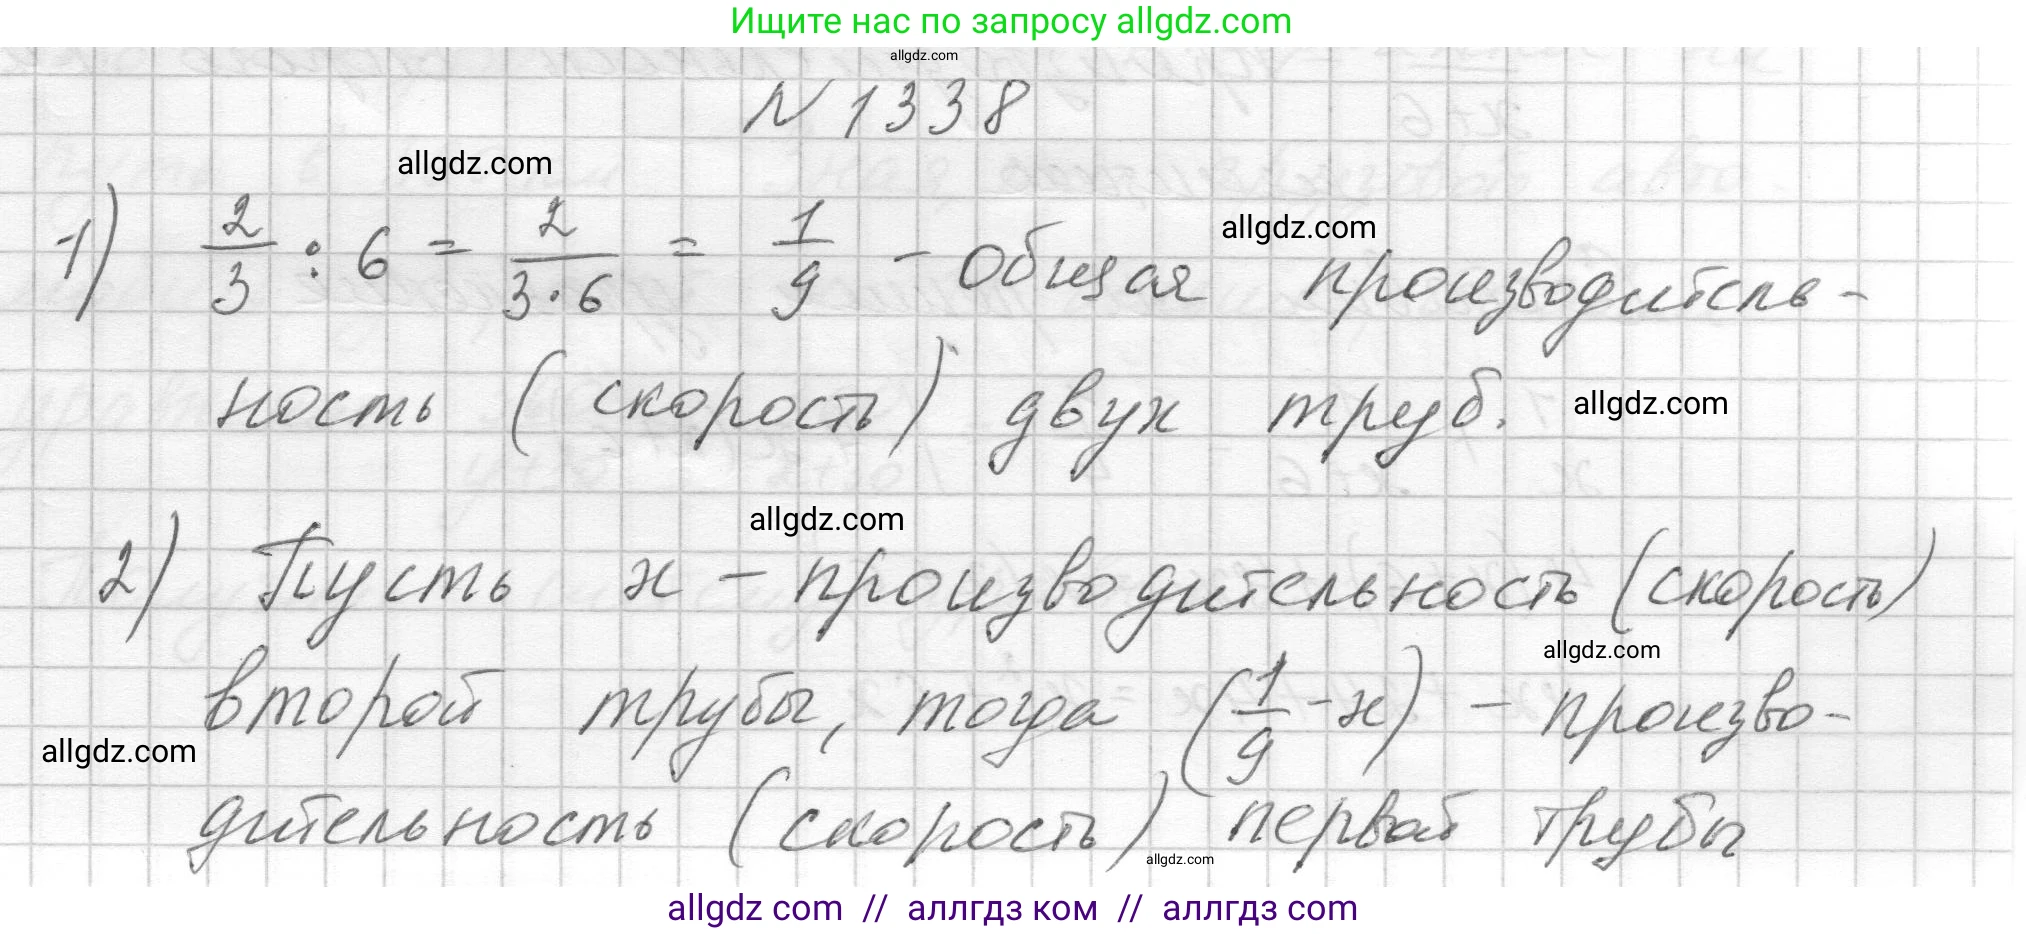 Ищите нас по запросу allgdz.com
allgdz.com
N 1338
allgdz.com
1) 2/3 : 6 = 2/(3·6) = 1/9 - общая производитель-
allgdz.com
ность (скорость) двух труб.
allgdz.com
allgdz.com
2) Пусть x - производительность (скорость)
allgdz.com
второй трубы, тогда (1/9 - x) - произво-
allgdz.com
дительность (скорость) первой трубы
allgdz.com
allgdz com // аллгдз ком // аллгдз com